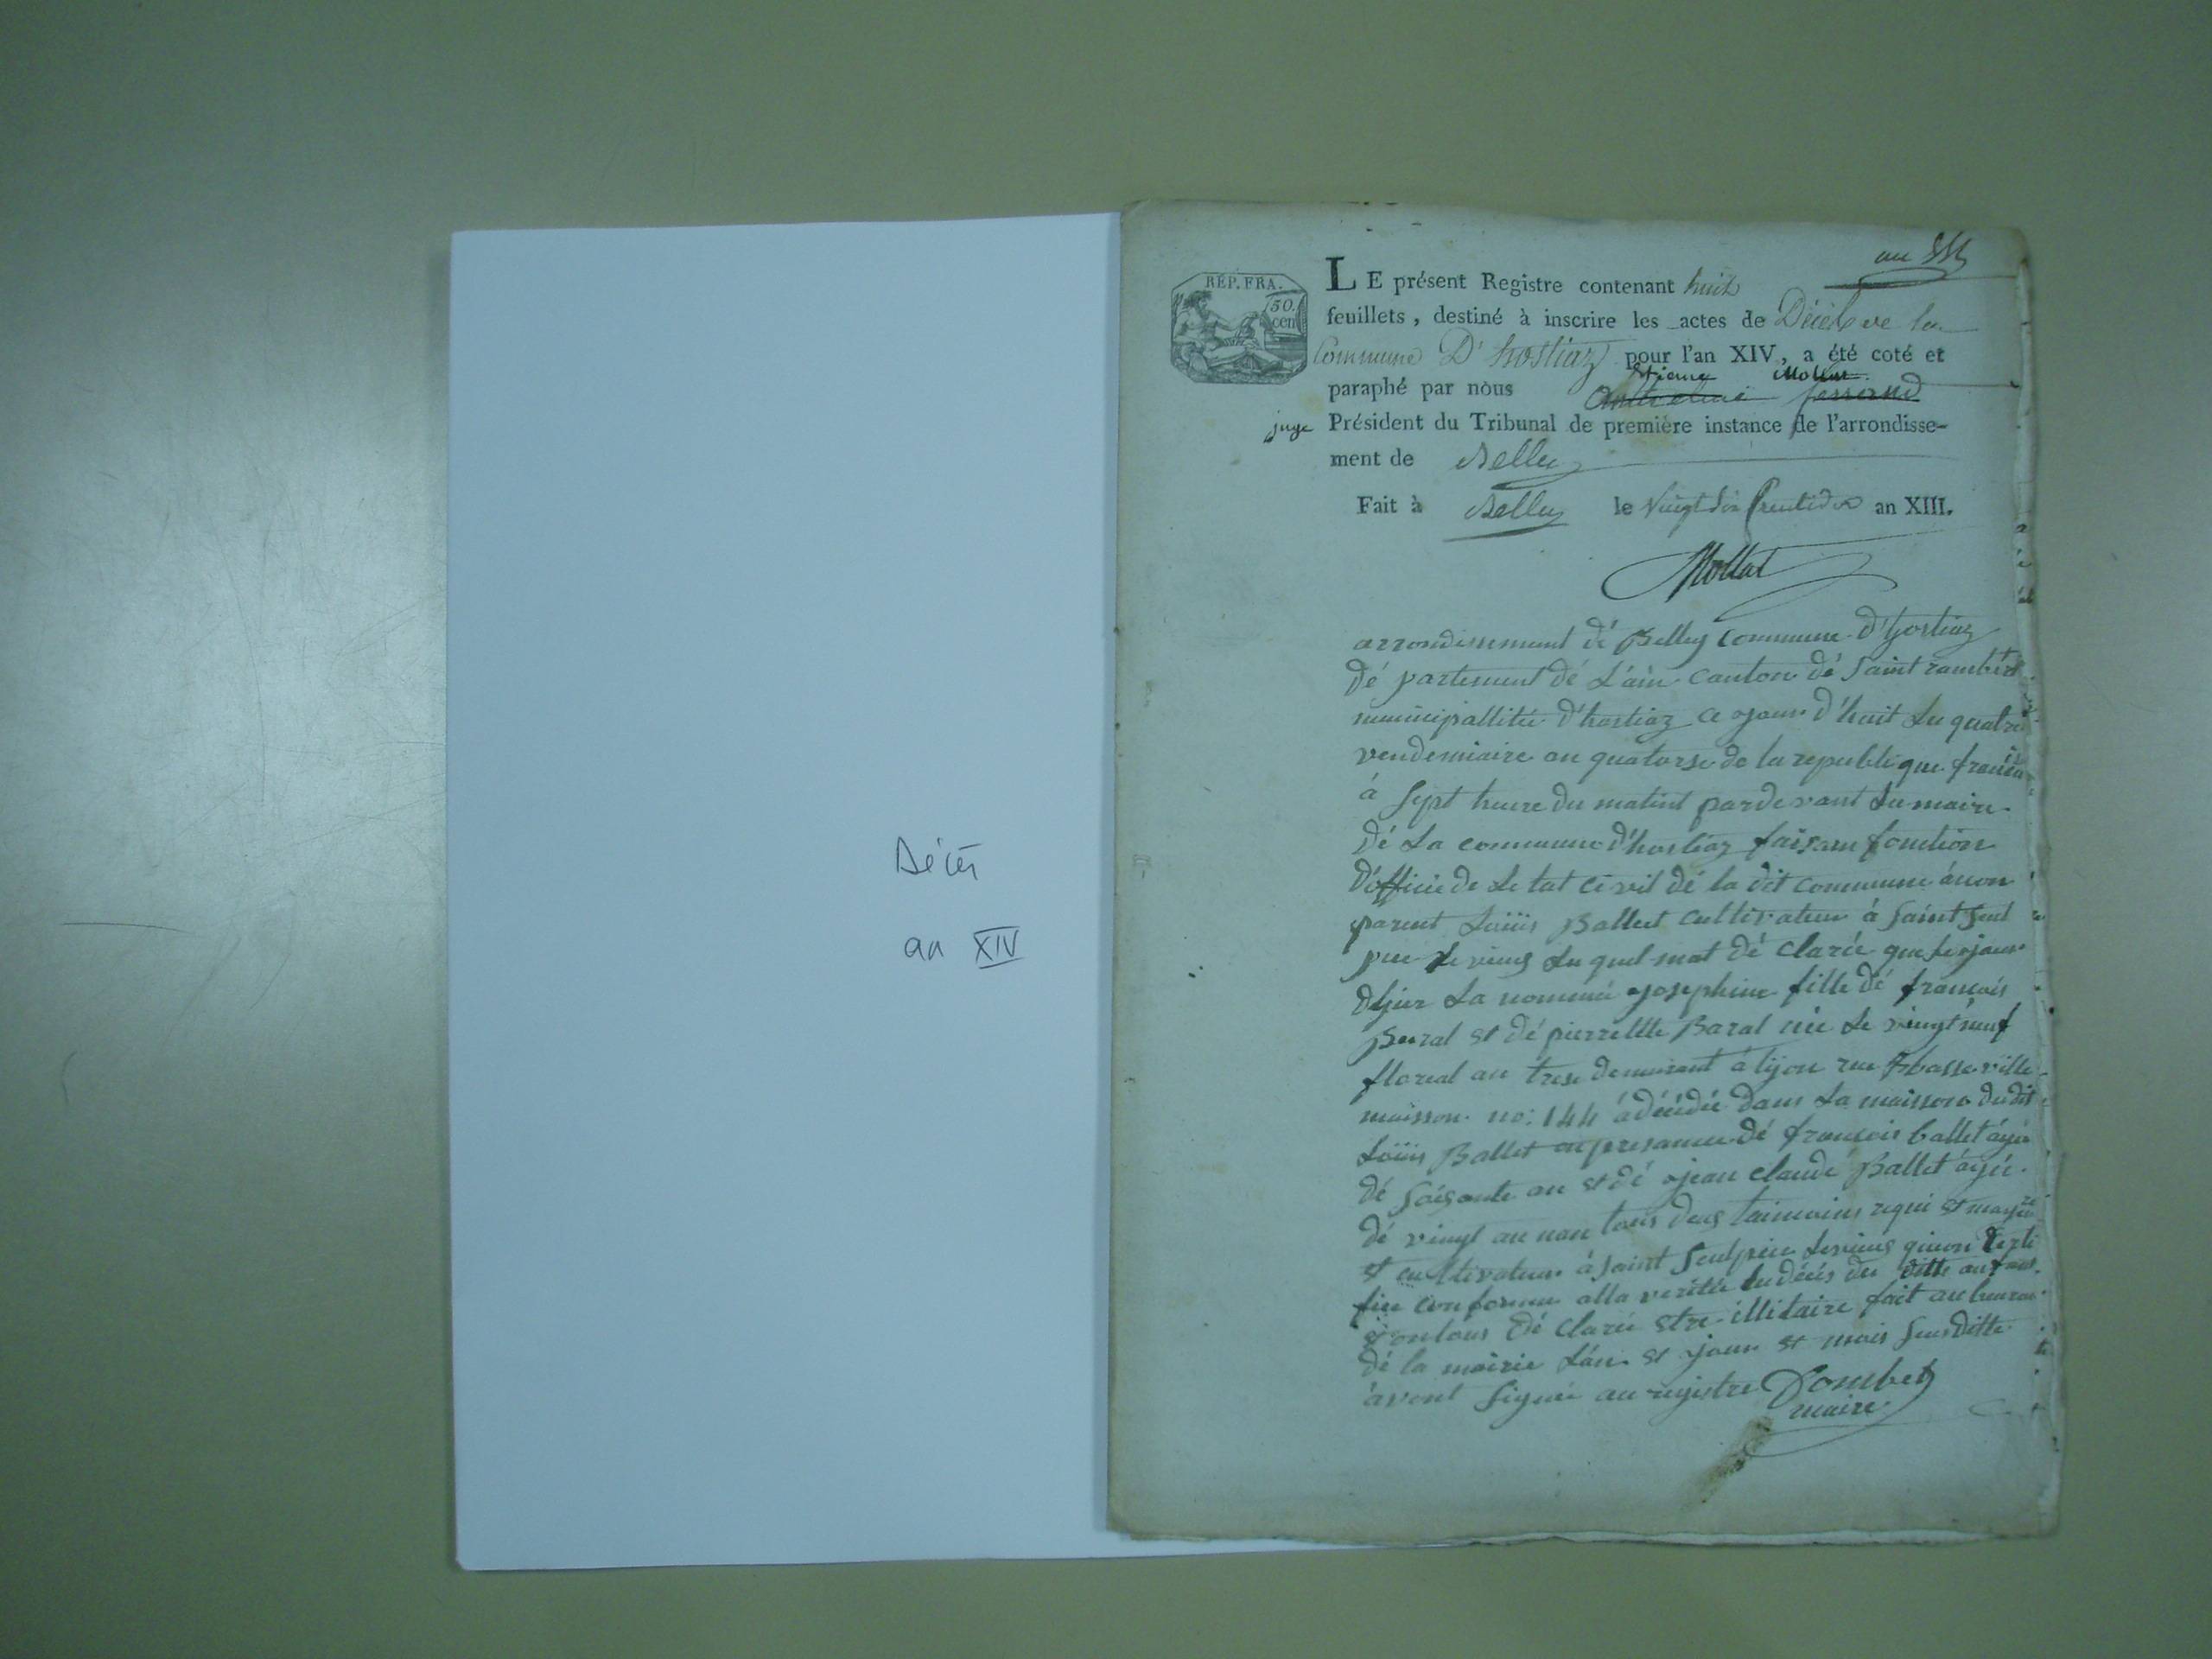 Décès
an XIV
RÉP. FRA.
50.
cen
LE présent Registre contenant huit
feuillets, destiné à inscrire les actes de Décès de la
Commune D'hostiaz pour l'an XIV, a été coté et
paraphé par nous
juge Président du Tribunal de première instance de l'arrondisse-
ment de Belley
Fait à Belley le Vingt six fructidor an XIII.
Mollat
arrondissement dé Belley commune d'hostiaz
dé partement dé L'ain canton dé Saint rambert
municipallitée d'hostiaz ce ojour d'huit Le quatre
vendemiaire an quatorse de la republique
à Sept heure du matint pardevant Le maire
dé La commune d'hostiaz faisam fonction
d'officie de Le tat civil dé la dit commune
parut Loüis Ballet cultivateur à Saint Seul
pice Le vieug Le quel mat dé clarée que le ojour
dhier La nommé Josephine fille dé françois
Baral et dé pierrette Baral née Le vingt neuf
floreal an trese demurant à lyon rue basse ville
maisson no: 144 à décédée dans La maisson dudit
Loüis Ballet au presance dé françois ballet âgée
dé Soisante an et dé ojean claude Ballet âgée
dé vingt an nan tous deug taimoins requi et
et cultivateur à saint Seulpice Levieug
conforme alla veritée Ledécés du ditte
dé claré etre illitaire fait au burau
dé la mairie L'an et jour et mois Susditte
avont Signée au registre Dombey
maire